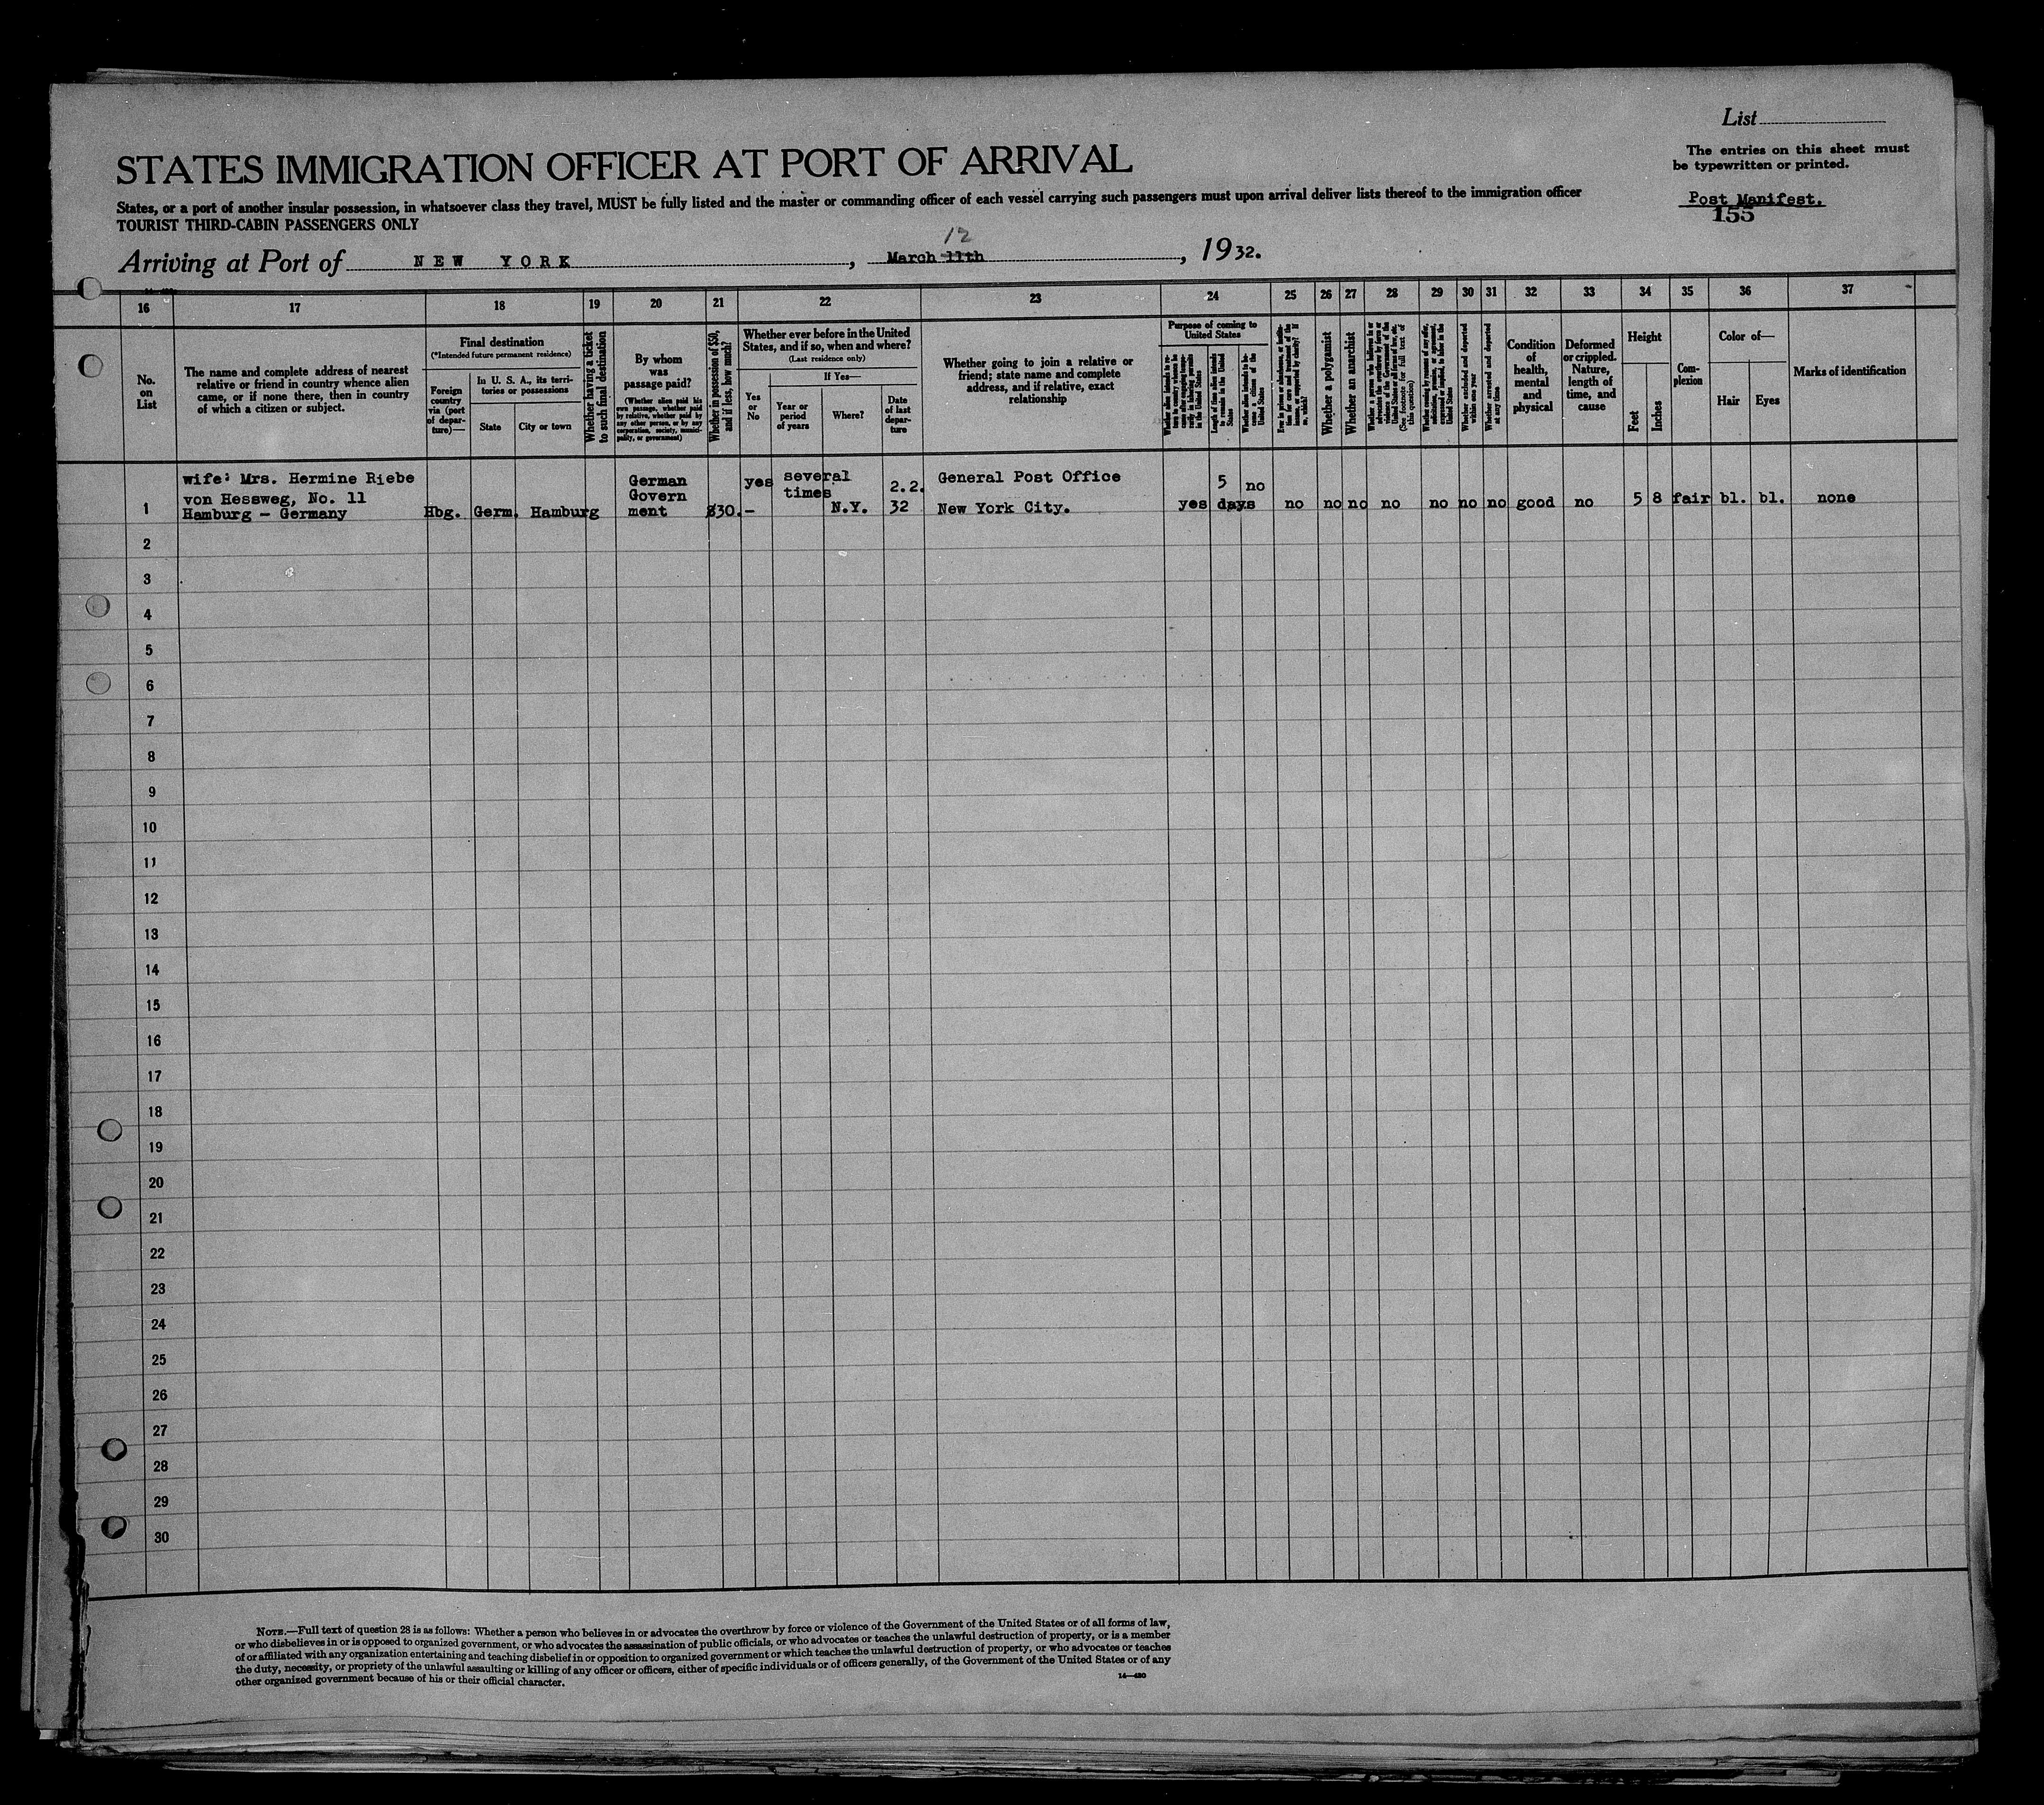 List
STATES IMMIGRATION OFFICER AT PORT OF ARRIVAL
The entries on this sheet must
be typewritten or printed.
States, or a port of another insular possession, in whatsoever class they travel, MUST be fully listed and the master or commanding officer of each vessel carrying such passengers must upon arrival deliver lists thereof to the immigration officer
TOURIST THIRD-CABIN PASSENGERS ONLY
Post Manifest.
155
12
Arriving at Port of NEW YORK, March 11th, 1932.
16 17 18 19 20 21 22 23 24 25 26 27 28 29 30 31 32 33 34 35 36 37
No.
on
List
The name and complete address of nearest
relative or friend in country whence alien
came, or if none there, then in country
of which a citizen or subject.
Final destination
(*Intended future permanent residence)
Foreign
country
via (port
of depar-
ture)—
In U. S. A., its terri-
tories or possessions
State
City or town
Whether having a ticket
to such final destination
By whom
was
passage paid?
(Whether alien paid his
own passage, whether paid
by relative, whether paid by
any other person, or by any
corporation, society, munici-
pality, or government)
Whether in possession of $50,
and if less, how much?
Whether ever before in the United
States, and if so, when and where?
(Last residence only)
Yes
or
No
If Yes—
Year or
period
of years
Where?
Date
of last
depar-
ture
Whether going to join a relative or
friend; state name and complete
address, and if relative, exact
relationship
Purpose of coming to
United States
Length of time alien intends
to remain in the United
States
Whether alien intends to be-
come a citizen of the
United States
Whether a polygamist
Whether an anarchist
(See footnote for full text of
this question)
Whether excluded and deported
within one year
Whether arrested and deported
at any time
Condition
of
health,
mental
and
physical
Deformed
or crippled.
Nature,
length of
time, and
cause
Height
Feet
Inches
Com-
plexion
Color of—
Hair
Eyes
Marks of identification
1
wife: Mrs. Hermine Riebe
von Hessweg, No. 11
Hamburg - Germany
Hbg. Germ. Hamburg
German
Govern
ment
$30.-
yes
several
times
N.Y.
2.2.
32
General Post Office
New York City.
yes
5
days
no
no no no no no no no good no 5 8 fair bl. bl. none
2
3
4
5
6
7
8
9
10
11
12
13
14
15
16
17
18
19
20
21
22
23
24
25
26
27
28
29
30
NOTE.—Full text of question 28 is as follows: Whether a person who believes in or advocates the overthrow by force or violence of the Government of the United States or of all forms of law,
or who disbelieves in or is opposed to organized government, or who advocates the assassination of public officials, or who advocates or teaches the unlawful destruction of property, or is a member
of or affiliated with any organization entertaining and teaching disbelief in or opposition to organized government or which teaches the unlawful destruction of property, or who advocates or teaches
the duty, necessity, or propriety of the unlawful assaulting or killing of any officer or officers, either of specific individuals or of officers generally, of the Government of the United States or of any
other organized government because of his or their official character.
14—430